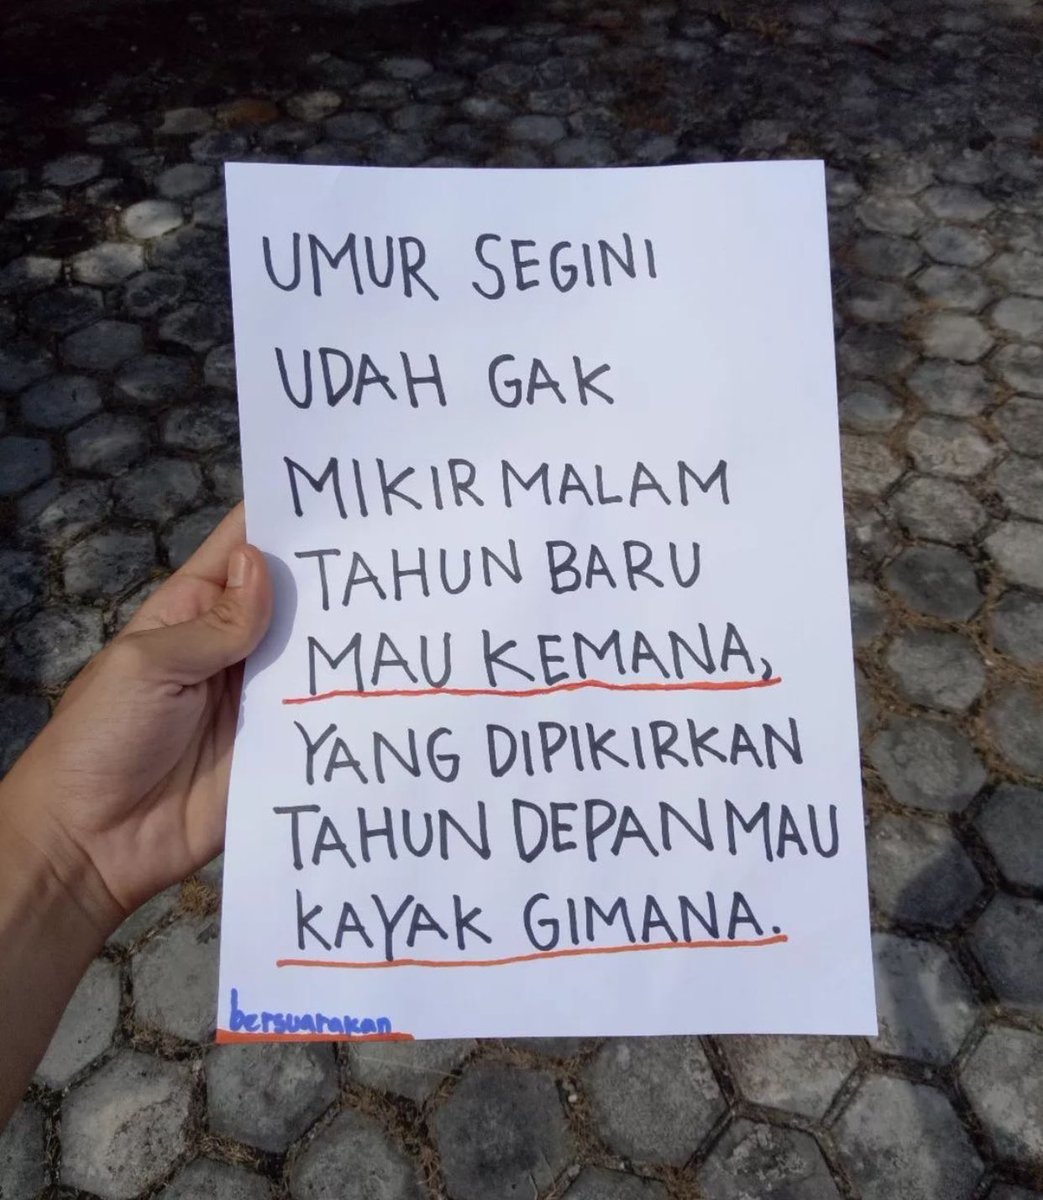 UMUR SEGINI
UDAH GAK
MIKIR MALAM
TAHUN BARU
MAU KEMANA,
YANG DIPIKIRKAN
TAHUN DEPAN MAU
KAYAK GIMANA.
bersuarakan